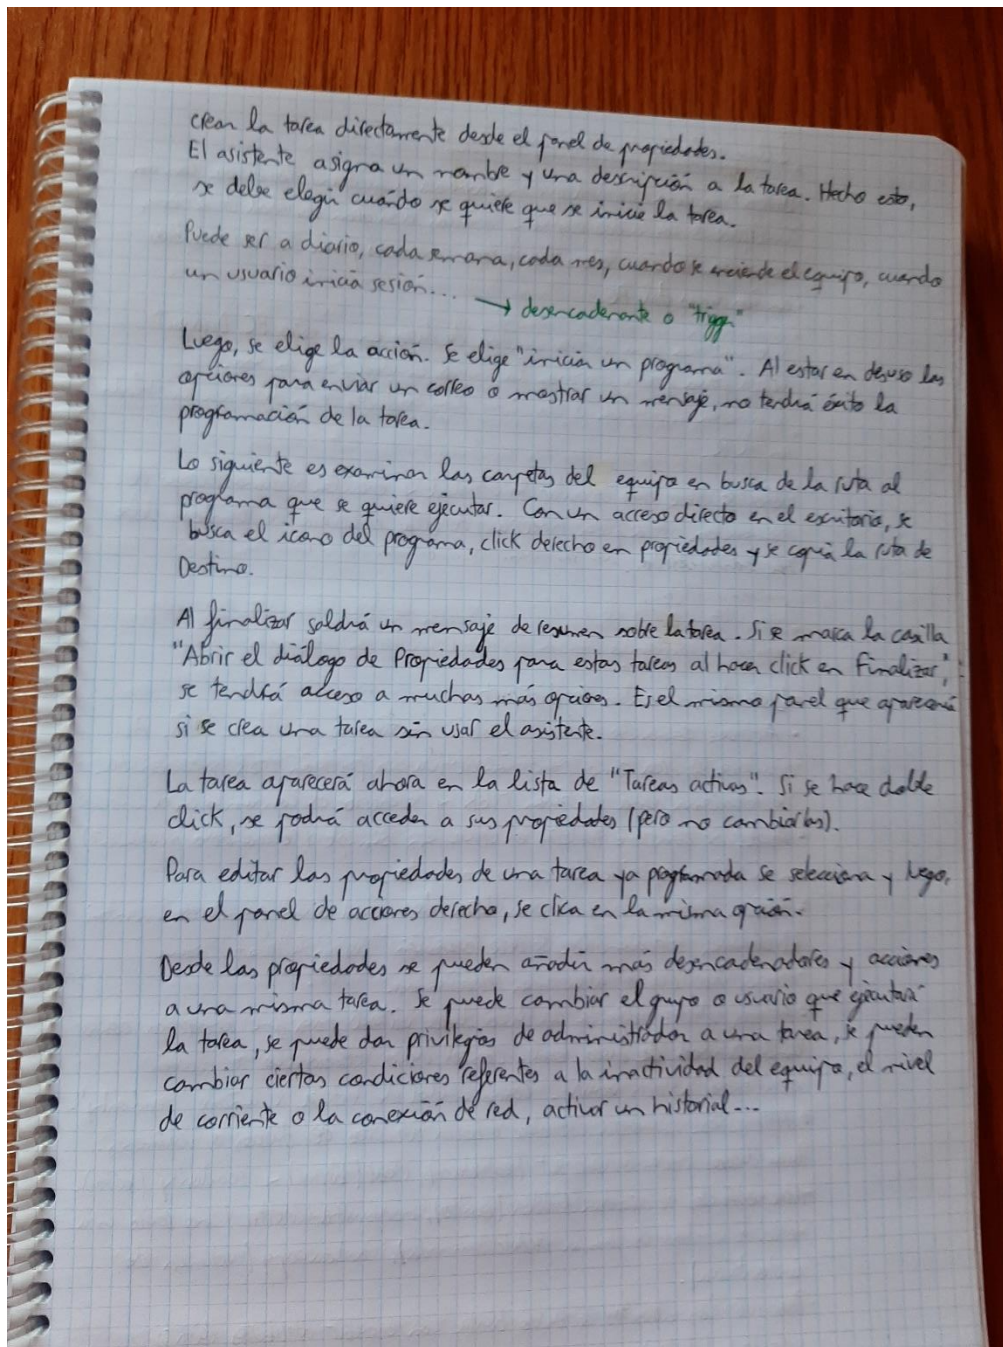 crear la tarea directamente desde el panel de propiedades.
El asistente asigna un nombre y una descripción a la tarea. Hecho esto,
se debe elegir cuándo se quiere que se inicie la tarea.
Puede ser a diario, cada semana, cada mes, cuando se enciende el equipo, cuando
un usuario inicia sesión...
→ desencadenante o "trigger"
Luego, se elige la acción. Se elige "iniciar un programa". Al estar en desuso las
opciones para enviar un correo o mostrar un mensaje, no tendrá éxito la
programación de la tarea.
Lo siguiente es examinar las carpetas del equipo en busca de la ruta al
programa que se quiere ejecutar. Con un acceso directo en el escritorio, se
busca el icono del programa, click derecho en propiedades y se copia la ruta de
Destino.
Al finalizar saldrá un mensaje de resumen sobre la tarea. Si se marca la casilla
"Abrir el diálogo de Propiedades para estas tareas al hacer click en Finalizar",
se tendrá acceso a muchas más opciones. Es el mismo panel que aparecería
si se crea una tarea sin usar el asistente.
La tarea aparecerá ahora en la lista de "Tareas activas". Si se hace doble
click, se podrá acceder a sus propiedades (pero no cambiarlas).
Para editar las propiedades de una tarea ya programada se selecciona y luego,
en el panel de acciones derecho, se clica en la misma opción.
Desde las propiedades se pueden añadir más desencadenadores y acciones
a una misma tarea. Se puede cambiar el grupo o usuario que ejecutará
la tarea, se puede dar privilegios de administrador a una tarea, se pueden
cambiar ciertas condiciones referentes a la inactividad del equipo, el nivel
de corriente o la conexión de red, activar un historial...